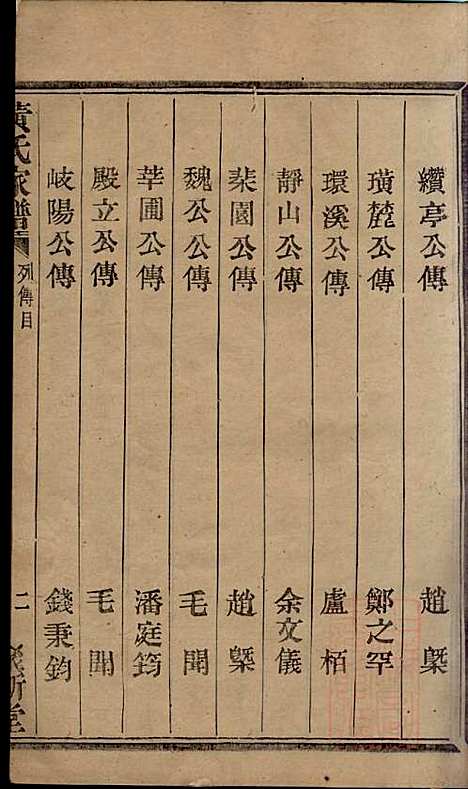 纘亭公傳　趙槩
璜麓公傳　鄭之罕
環溪公傳　盧栢
靜山公傳　余文儀
棐園公傳　趙槩
魏公公傳　毛開
莘圃公傳　潘庭筠
殿立公傳　毛開
岐陽公傳　錢秉鈞
黃氏家譜　列傳目　二